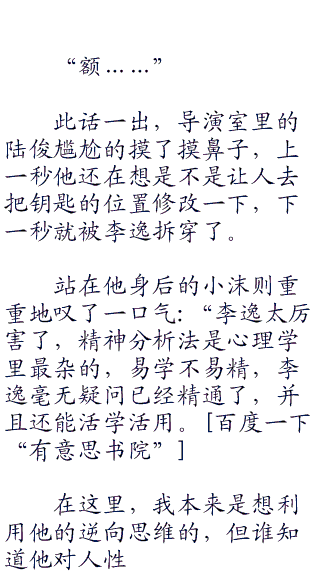 “额……”
此话一出，导演室里的
陆俊尴尬的摸了摸鼻子，上
一秒他还在想是不是让人去
把钥匙的位置修改一下，下
一秒就被李逸拆穿了。
站在他身后的小沫则重
重地叹了一口气：“李逸太厉
害了，精神分析法是心理学
里最杂的，易学不易精，李
逸毫无疑问已经精通了，并
且还能活学活用。[百度一下
“有意思书院”]
在这里，我本来是想利
用他的逆向思维的，但谁知
道他对人性